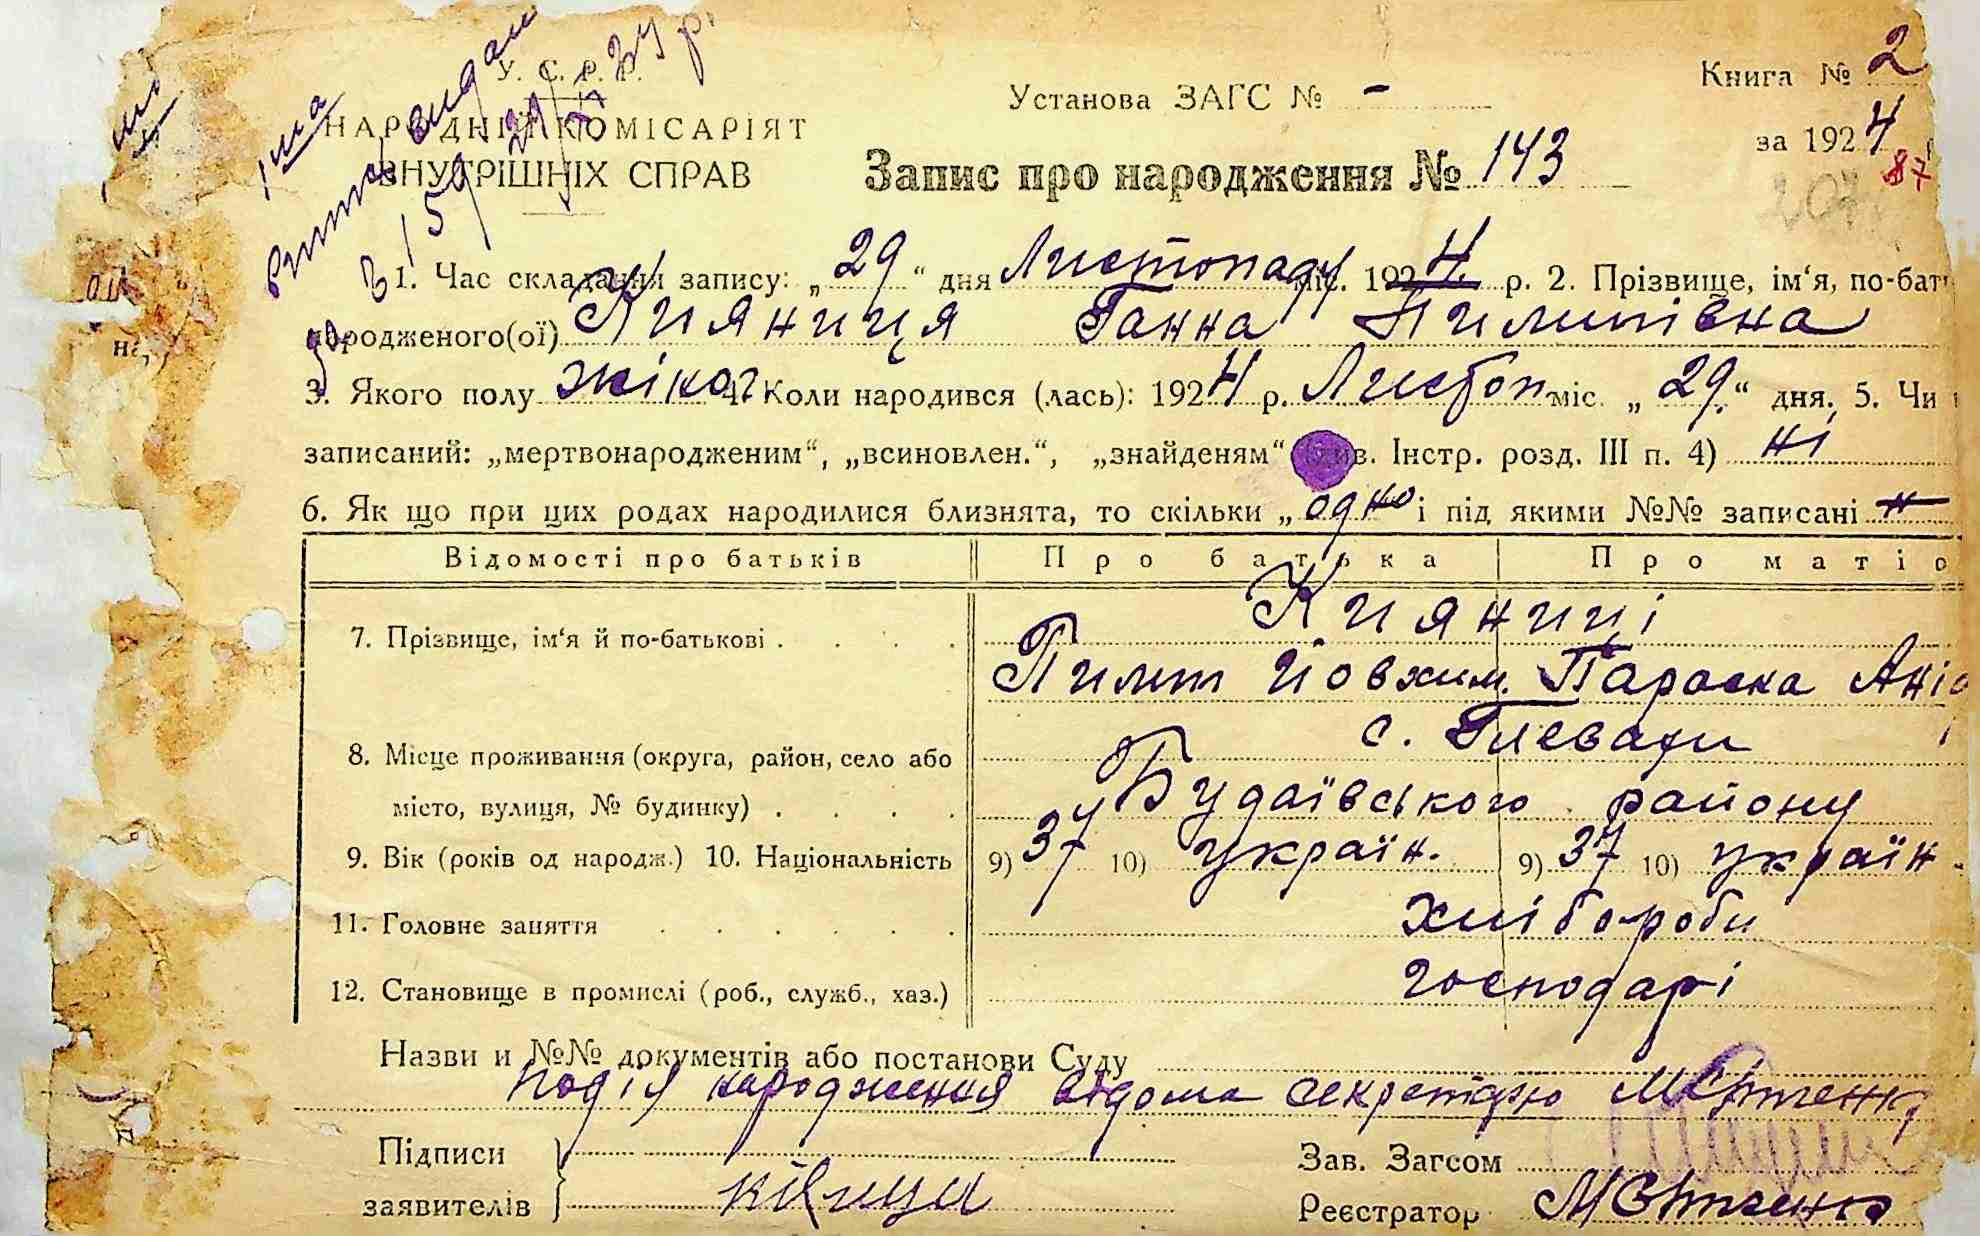 У. С. Р. Р.
НАРОДНІЙ КОМІСАРІЯТ
ВНУТРІШНІХ СПРАВ
Установа ЗАГС № -
Книга № 2
за 1924
87
207
Запис про народження № 143
1. Час складання запису: „29“ дня Листопаду міс. 1924 р. 2. Прізвище, ім‘я, по-бать
народженого(ої) Кияниця Ганна Пилипівна
3. Якого полу жіноч 4. Коли народився (лась): 1924 р. Листоп міс. „29.“ дня. 5. Чи
записаний: „мертвонародженим“, „всиновлен.“, „знайденям“ (див. Інстр. розд. III п. 4) ні
6. Як що при цих родах народилися близнята, то скільки „одно і під якими №№ записані
Відомості про батьків Про батька Про матір
7. Прізвище, ім‘я й по-батькові . . . . Кияниці
Пилип Йовхим. Параска Ані
с. Глеваҳи
8. Місце проживання (округа, район, село або
місто, вулиця, № будинку) . . . . Будаївського району
9. Вік (років од народж.) 10. Національність 9) 37 10) україн. 9) 37 10) україн.
11. Головне заняття . . . . . . хлібороби
12. Становище в промислі (роб., служб., хаз.) господарі
Назви и №№ документів або постанови Суду
подія народження відома секретарю
Підписи
заявителів
Зав. Загсом
Реєстратор